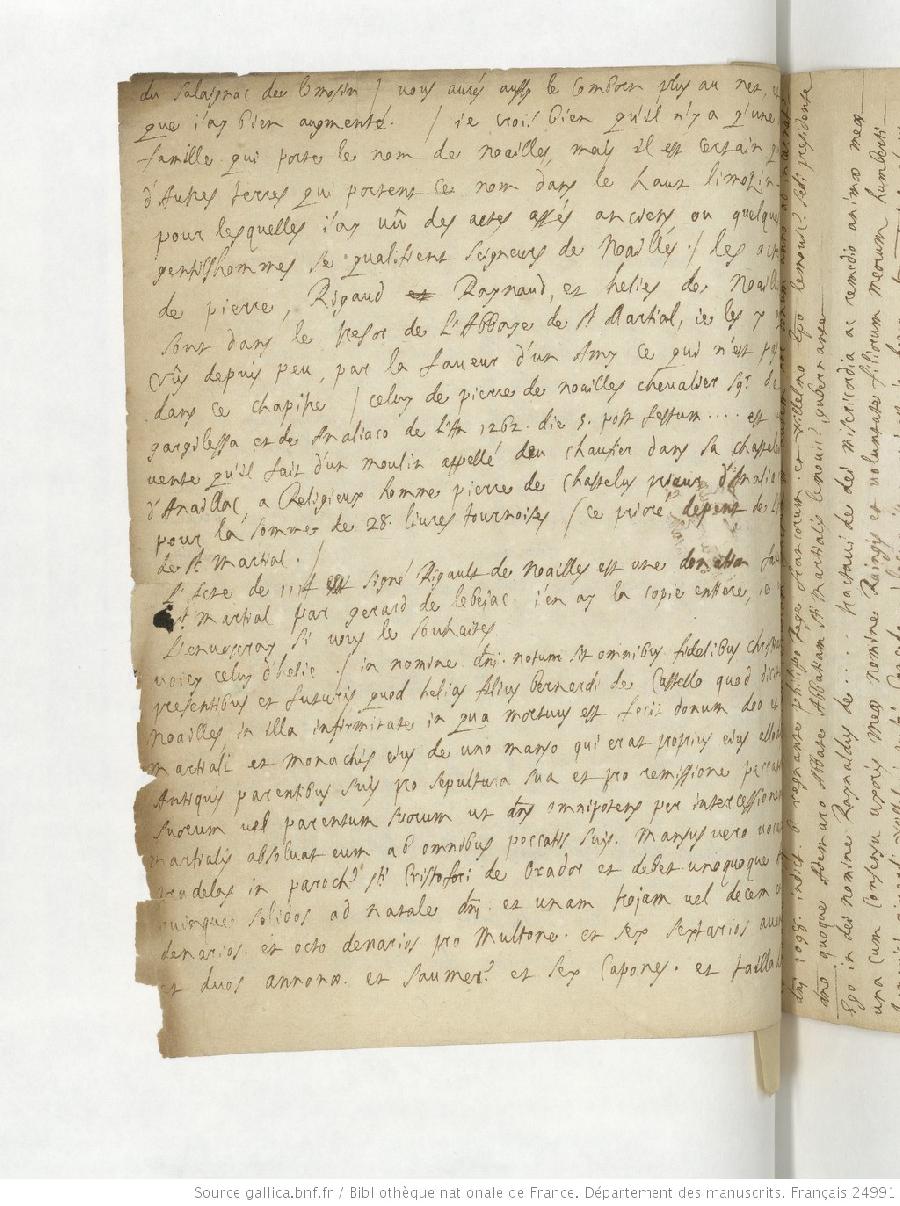 du Salaignac de Limosin / vous aurés aussy le Comborn plus au net, et
que i'ay bien augmenté. / ie crois bien qu'il n'y a q'une
famille qui porte le nom de Noailles, mais il est certain q
d'Autres terres qui portent ce nom dans le haut limozin
pour lesquelles i'ay vû des actes assés anciens ou quelques
gentilshommes se qualifient seigneurs de Noailles. / les act
de pierre, Rigaud et Raynaud, et helies de Noaill
sont dans le tresor de l'Abbaye de St Martial, ie les y ay
vûs depuis peu, par la faveur d'un Amy ce qui n'est pas
dans ce chapitre / celuy de pierre de noailles chevalier sgr. de
gargilessa et de Analiaco de l'An 1262. die 5. post festum .... est u
vente qu'il fait d'un moulin appellé deu chautier dans sa chastel
d'Anaillac, a Religieux homme pierre de Chastelus prieur d'Analia
pour la somme de 28. livres tournoises / ce prioré depent de l'
de St. Martial. /
l'Acte de 111 signé Rigault de Noailles est une donation fai
St Martial par gerard de lebejac i'en ay la copie entiere, ie
l'envuerray si vous le souhaités
voicy celuy d'helie / in nomine dnj. notum sit omnibus fidelibus chr
presentibus et futuris quod helias filius Bernardi de Castello quod dicit
Noailles in illa infirmitate in qua mortuus est fecit donum deo et
martiali et monachis eius de uno manso qui erat proprius eius allod
Antiquis parentibus suis pro sepultura sua et pro remissione peccato
suorum vel parentum suorum ut dns omnipotens per intercessionem
martialis absoluat eum ab omnibus peccatis suis. Mansus vero voca
in paroch. sti Cristofori de Orador et debet unoquoque
quinque solidos ad natale dnj. et unam trojam vel decem
denarios et octo denarios pro Multone. et sex sextarios aven
et duos annonæ. et saumer. et sex Capones. et tailla
dnj 1096 indict. 6 regnante philippo rege francorum. et Willelmo Epo lemouic. sedi presidente
dno quoque Ademaro Abbate Abbatiam sti Martialis lemouic. gubernante
Ego in dei nomine Raynaldus de .... tractavi de dei misericordia ac remedio animæ meæ
una cum Consensu uxoris meæ nomine Raingis et voluntate filiorum meorum humberti